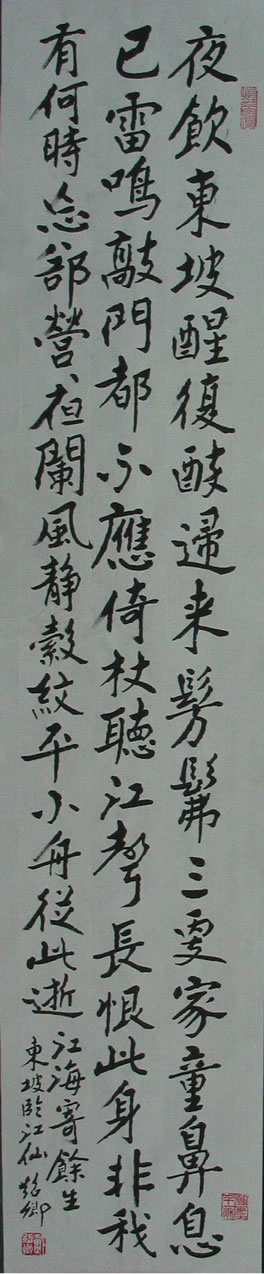 夜飲東坡醒復醉歸来髣髴三更家童鼻息
已雷鳴敲門都不應倚杖聽江聲長恨此身非我
有何時忘卻營〻夜闌風靜縠紋平小舟從此逝
江海寄餘生
東坡臨江仙 卿